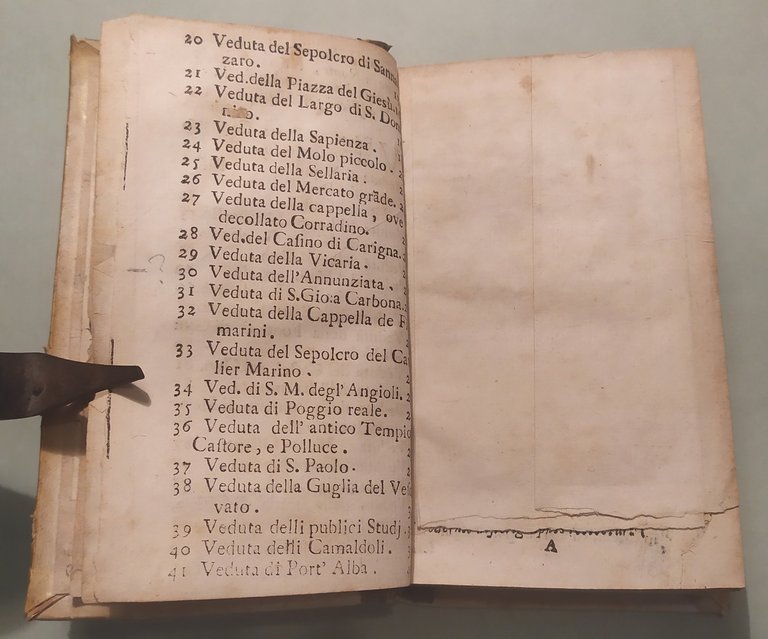 20 Veduta del Sepolcro di Sanna
zaro.
21 Ved.della Piazza del Giesù.
22 Veduta del Largo di S. Dom
nico.
23 Veduta della Sapienza.
24 Veduta del Molo piccolo. 2
25 Veduta della Sellaria. 2
26 Veduta del Mercato grãde. 2
27 Veduta della cappella, ove
decollato Corradino. 2
28 Ved.del Casino di Carigna. 2
29 Veduta della Vicaria. 2
30 Veduta dell'Annunziata. 2
31 Veduta di S.Gio:a Carbona. 2
32 Veduta della Cappella de
marini. 2
33 Veduta del Sepolcro del Ca
lier Marino. 2
34 Ved. di S. M. degl'Angioli. 2
35 Veduta di Poggio reale. 2
36 Veduta dell' antico Tempio
Castore, e Polluce. 2
37 Veduta di S. Paolo. 2
38 Veduta della Guglia del Ves
vato. 3
39 Veduta delli publici Studj. 3
40 Veduta delli Camaldoli. 3
41 Veduta di Port' Alba.
A